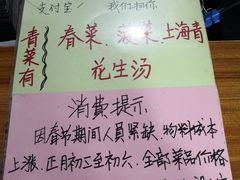 支付宝/我们相信
青菜有
春菜、菠菜、上海青
花生汤
消费提示
因春节期间人员紧缺、物料成本
上涨,正月初二至初六,全部菜品价格